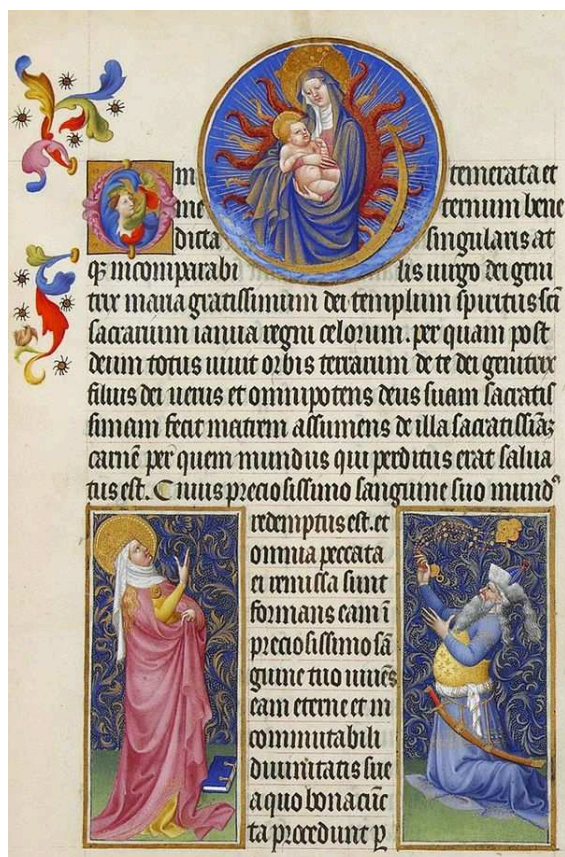 O in temerata et
ine ternum bene
dicta singularis at
qꝫ incomparabi lis uirgo dei geni
trix maria gratissimum dei templum spiritus sc̄i
sacrarium ianua regni celorum. per quam post
deum totus uiuit orbis terrarum de te dei genitrix
filius dei uerus et omnipotens deus suam sacratis
simam fecit matrem assumens de illa sacratissiāꝫ
carnē per quem mundus qui perditus erat salua
tus est. Cuius preciosissimo sanguine suo mundꝰ
redemptus est. et
omnia peccata
ei remissa sunt
formans eam ī
preciosissimo sā
guine tuo uiuēs
eam eterne et in
commutabili
diuinitatis sue
a quo bona cūc
ta procedunt ꝑ